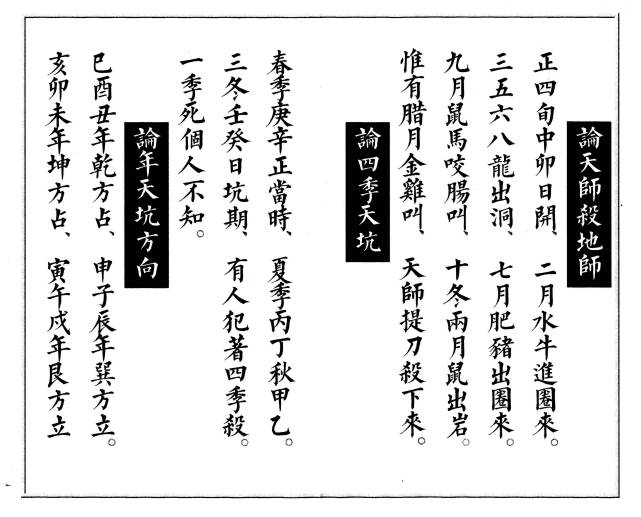 論天師殺地師
正四旬中卯日開、二月水牛進圈來。
三五六八龍出洞、七月肥豬出圈來。
九月鼠馬咬腸叫、十冬兩月鼠出岩。
惟有腊月金雞叫、天師提刀殺下來。
論四季天坑
春季庚辛正當時、夏季丙丁秋甲乙。
三冬壬癸日坑期、有人犯著四季殺。
一季死個人不知。
論年天坑方向
巳酉丑年乾方占、申子辰年巽方立。
亥卯未年坤方占、寅午戌年艮方立